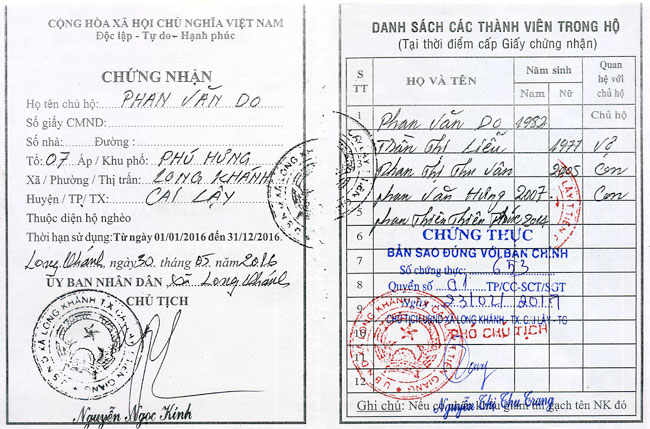 CỘNG HÒA XÃ HỘI CHỦ NGHĨA VIỆT NAM
Độc lập - Tự do - Hạnh phúc
CHỨNG NHẬN
Họ tên chủ hộ: PHAN VĂN DO
Số giấy CMND:
Số nhà: Đường:
Tổ: 07 Ấp / Khu phố: PHÚ HƯNG
Xã / Phường / Thị trấn: LONG KHÁNH
Huyện / TP/ TX: CAI LẬY
Thuộc diện hộ nghèo
Thời hạn sử dụng: Từ ngày 01/01/2016 đến 31/12/2016.
Long Khánh, ngày 30 tháng 05 năm 2016
ỦY BAN NHÂN DÂN xã Long Khánh
CHỦ TỊCH
Nguyễn Ngọc Kính
DANH SÁCH CÁC THÀNH VIÊN TRONG HỘ
(Tại thời điểm cấp Giấy chứng nhận)
S TT HỌ VÀ TÊN Năm sinh Nam Nữ Quan hệ với chủ hộ
1 Phan Văn Do 1982 Chủ hộ
Trần Thị Liễu 1977 Vợ
Phan Thị Thu Vân 2005 Con
Phan Văn Hưng 2007 Con
5 Phan Thiên Thiên
6 CHỨNG THỰC
7 BẢN SAO ĐÚNG VỚI BẢN CHÍNH
Số chứng thực: 653
8 Quyển số 01 TP/CC-SCT/SGT
9 Ngày 23/02/2017
CHỦ TỊCH UBND XÃ LONG KHÁNH, TX. CAI LẬY - TG
PHÓ CHỦ TỊCH
11
12
Nguyễn Thị Thu Trang
Ghi chú: Nếu có nhân khẩu giảm thì gạch tên NK đó